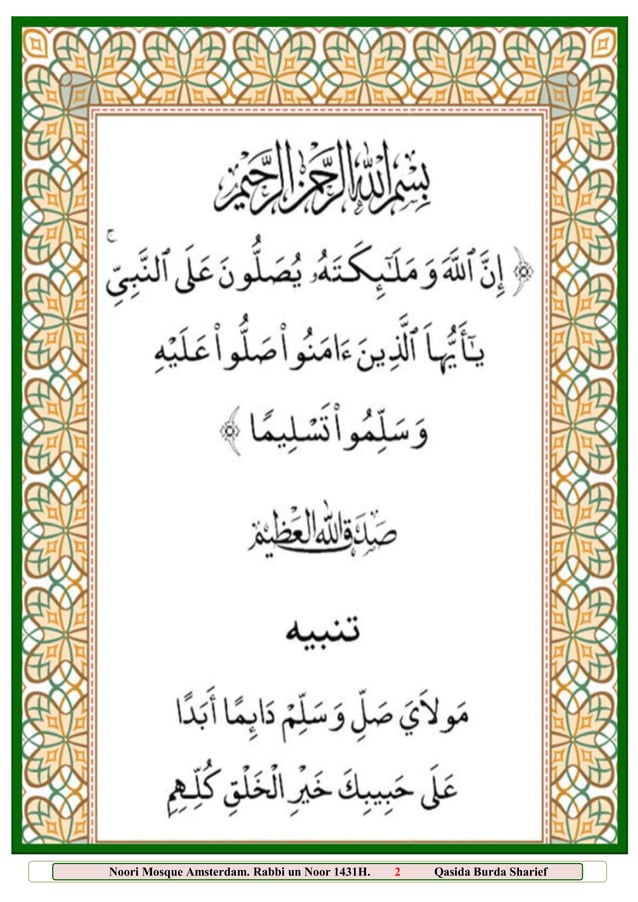 بسم الله الرحمن الرحيم
﴿ إِنَّ ٱللَّهَ وَ مَلَـٰٓئِكَـتَهُۥ يُصَلُّونَ عَلَى ٱلنَّبِىِّۚ
يَـٰٓأَيُّهاَ ٱلَّذِينَ ءَامَنُوا۟ صَلُّوا۟ عَلَيْهِ
وَ سَلِّمُوا۟ تَسْلِيمًا ﴾
صدق الله العظيم
تنبيه
مَولاَيَ صَلِّ وَ سَلِّمْ دَائِمًا أَبَدًا
عَلَى حَبِيبِكَ خَيْرِ الْخَلْقِ كُلِّهِمِ
Noori Mosque Amsterdam. Rabbi un Noor 1431H. 2 Qasida Burda Sharief